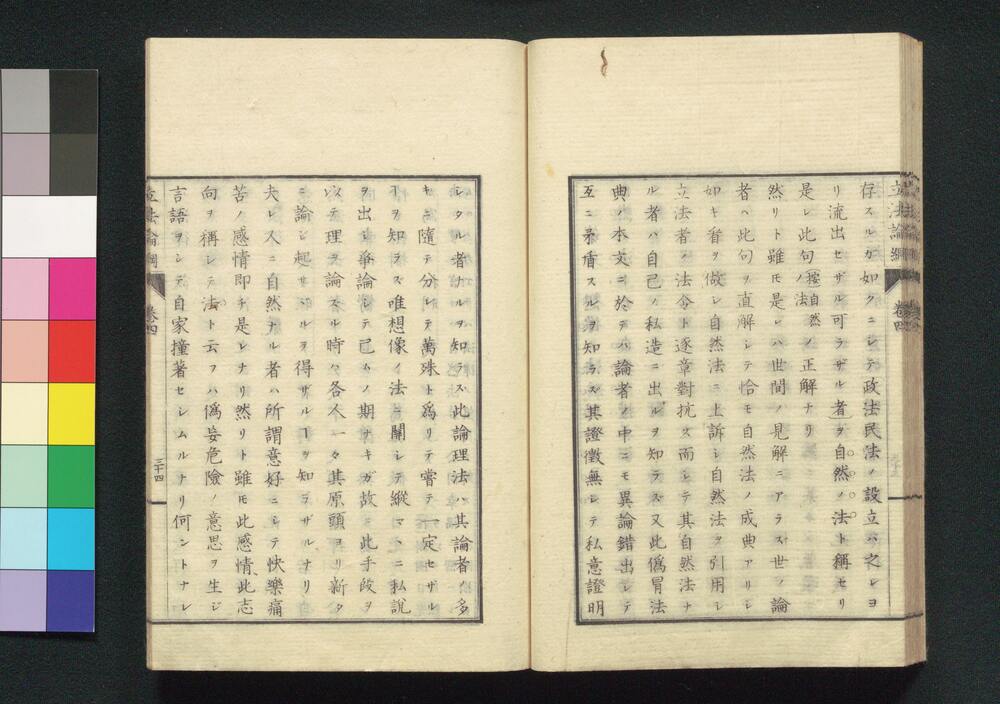 立法論綱 卷四
存スルガ如クニシテ政法民法ノ設立ハ之レヨ
リ流出セザル可ラザル者ヲ自然ノ法ト稱セリ
是レ此句按自然ノ法ノ正解ナリ
然リト雖モ是レハ世間ノ見解ニアラズ世ノ論
者ハ此句ヲ直解シテ恰モ自然法ノ成典アリシ
如キ看ヲ做シ自然法ニ上訴シ自然法ヲ引用シ
立法者ノ法令ト逐章對抗ス而シテ其自然法ナ
ル者ハ自己ノ私造ニ出ルヲ知ラズ又此僞冒法
典ノ本文ニ於テハ論者ノ中ニモ異論錯出シテ
互ニ矛盾スルヲ知ラズ其證徴無シテ私意證明
シタル者ナルヲ知ラズ此論理法ハ其論者ノ多
キニ隨テ分レテ萬殊ト爲リテ嘗テ一定セザル
ヿヲ知ラス唯想像ノ法ニ關シテ縱マヽニ私説
ヲ出シ爭論シテ已ムノ期ナキガ故ニ此手段ヲ
以テ理ヲ論スル時ハ各人一々其原頭ヨリ新タ
ニ論シ起サヾルヲ得ザルヿヲ知ラザルナリ
夫レ人ニ自然ナル者ハ所謂意好ニシテ快樂痛
苦ノ感情即チ是レナリ然リト雖モ此感情、此志
向ヲ稱シテ法ト云フハ僞妄危險ノ意思ヲ生シ
言語ヲシテ自家撞著セシムルナリ何ントナレ
立法論綱 卷四 三十四